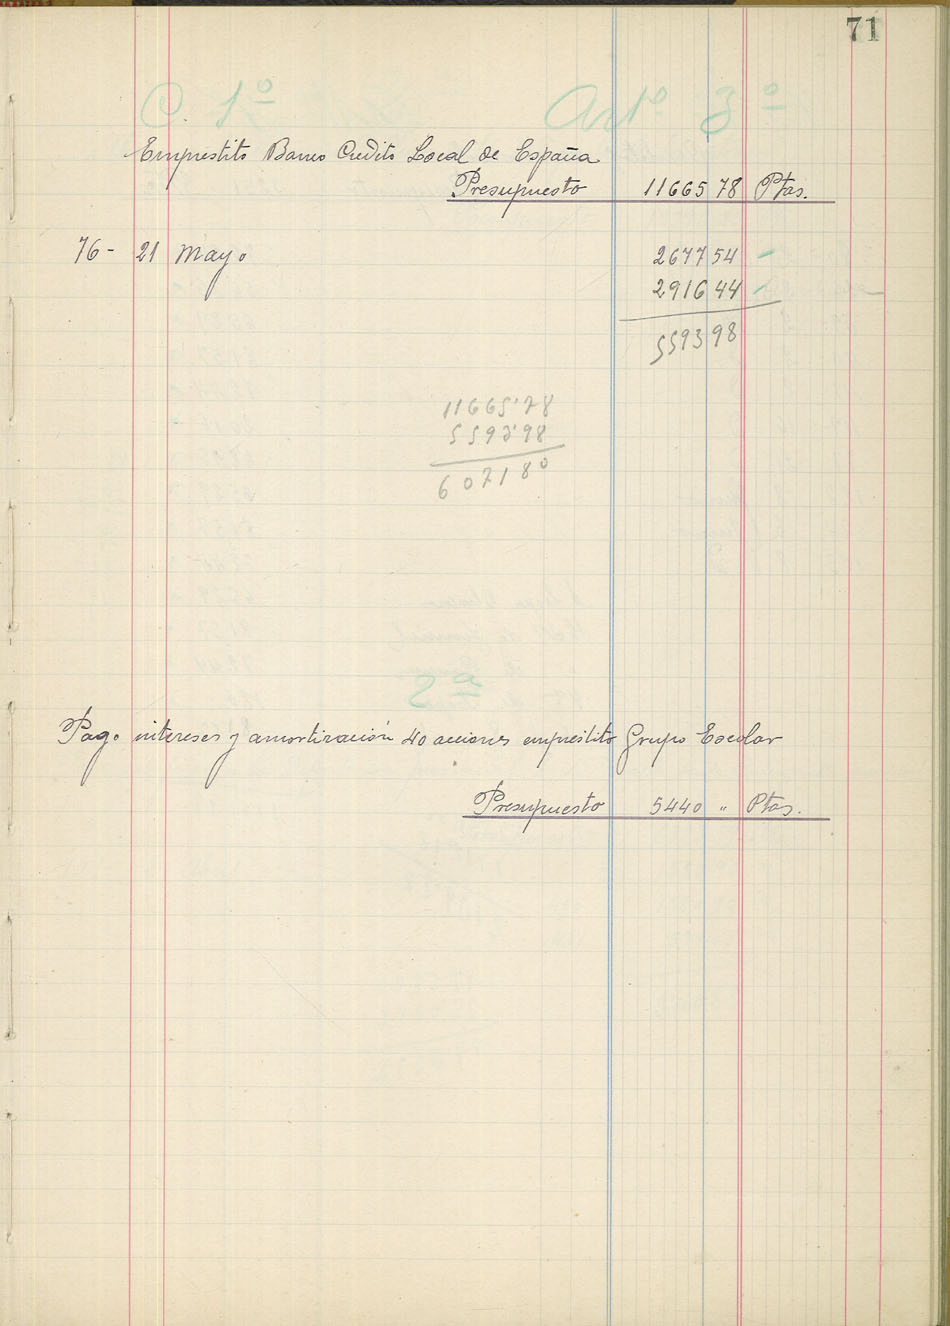 71
C. 1º Artº 3º
Emprestito Banco Credito Local de España
Presupuesto 11665 78 Ptas.
76 - 21 Mayo 2677 54
2916 44
5593 98
11665'78
5593'98
6071 80
2ª
Pago intereses y amortización 40 acciones emprestito Grupo Escolar
Presupuesto 5440 " Ptas.